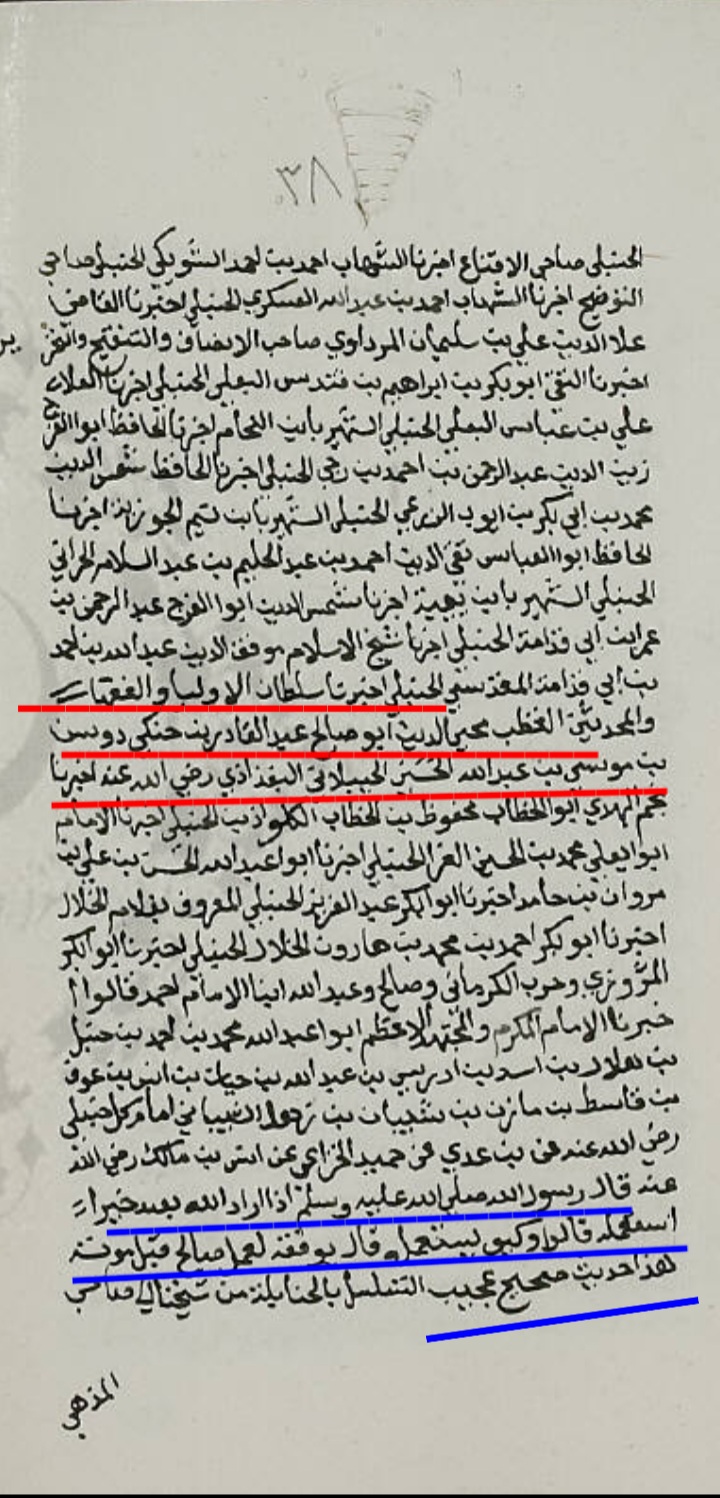 ٣٨
الحنبلي صاحب الاقناع اخبرنا الشهاب احمد بن احمد الشويكي الحنبلي صاحب
التوضيح اخبرنا الشهاب احمد بن عبدالله العسكري الحنبلي اخبرنا القاضي
علا الدين علي بن سليمان المرداوي صاحب الانصاف والتنقيح
اخبرنا التقي ابو بكر بن ابراهيم بن قندس البعلي الحنبلي اخبرنا العلاء
علي بن عباس البعلي الحنبلي الشهير بابن اللحام اخبرنا الحافظ ابوا الفرج
زين الدين عبد الرحمن بن احمد بن رجب الحنبلي اخبرنا الحافظ شمس الدين
محمد بن ابي بكر بن ايوب الزرعي الحنبلي الشهير بابن قيم الجوزية اخبرنا
الحافظ ابوا العباس تقي الدين أحمد بن عبد الحليم بن عبد السلام الحراني
الحنبلي الشهير بابن تيمية اخبرنا شمس الدين ابوا الفرج عبد الرحمن بن
عمر ابن ابي قدامة الحنبلي اخبرنا شيخ الاسلام موفق الدين عبد الله بن احمد
بن أبي قدامة المقدسي الحنبلي اخبرنا سلطان الاوليا والفقهاء
والمحدثين القطب محيي الدين أبو صالح عبد القادر بن جنكي دوست
بن موسى بن عبد الله الجيلاني البغدادي رضي الله عنه اخبرنا
نجم الهدي ابوا الخطاب محفوظ بن الخطاب الكلواذي الحنبلي اخبرنا الامام
ابوا يعلي محمد بن الحسين الفرا الحنبلي اخبرنا ابوا عبد الله الحسن بن علي بن
مروان بن حامد اخبرنا ابوا بكر عبد العزيز الحنبلي المعروف بغلام الخلال
اخبرنا ابو بكر احمد بن محمد بن هارون الخلال الحنبلي اخبرنا ابوا بكر
المروزي وحرب الكرماني وصالح وعبد الله ابنا الامام احمد قالوا أ
خبرنا الامام المكرم والمجتهد الاعظم ابوا عبد الله محمد بن احمد بن حنبل
بن هلال بن اسد بن ادريس بن عبد الله بن حيان بن انس بن عوف
بن قاسط بن مازن بن شيبان بن الشيباني امام كل حنبلي
رضي الله عنه عن بن عدي عن حميد الخزاعي عن انس بن مالك رضي الله
عنه قال رسول الله صلى الله عليه وسلم اذا اراد الله بعبد خيرا
استعمله قالوا وكيف يستعمله قال يوفقه لعمل صالح قبل موته
هذا حديث صحيح عجيب التسلسل بالحنابلة من شيخنا الي
المذهب